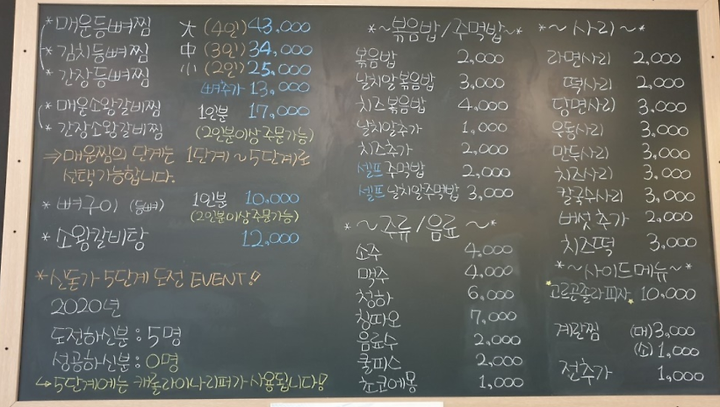 * 매운등뼈찜 大 (4인) 43,000
* 김치등뼈찜 中 (3인) 34,000
* 간장등뼈찜 小 (2인) 25,000
뼈추가 13,000
* 매운소왕갈비찜 1인분 17,000
* 간장소왕갈비찜 (2인분이상 주문가능)
⇒ 매운찜의 단계는 1단계~5단계로
선택가능합니다.
* 뼈구이 (등뼈) 1인분 10,000
(2인분이상주문가능)
* 소왕갈비탕 12,000
* 신돈가 5단계 도전 EVENT!!
2020년
도전하신분 : 5명
성공하신분 : 0명
↳ 5단계에는 캐롤라이나리퍼가 사용됩니다!
*~볶음밥/주먹밥~*
볶음밥 2,000
날치알볶음밥 3,000
치즈볶음밥 4,000
날치알추가 1,000
치즈추가 2,000
셀프 주먹밥 2,000
셀프 날치알주먹밥 3,000
*~주류/음료~*
소주 4,000
맥주 4,000
청하 6,000
칭따오 7,000
음료수 2,000
쿨피스 2,000
초코에몽 1,000
*~사리~*
라면사리 2,000
떡사리 2,000
당면사리 3,000
우동사리 3,000
만두사리 3,000
치즈사리 3,000
칼국수사리 3,000
버섯추가 2,000
치즈떡 3,000
*~사이드메뉴~*
고르곤졸라피자 10,000
계란찜 (대) 3,000
(소) 1,000
전추가 1,000